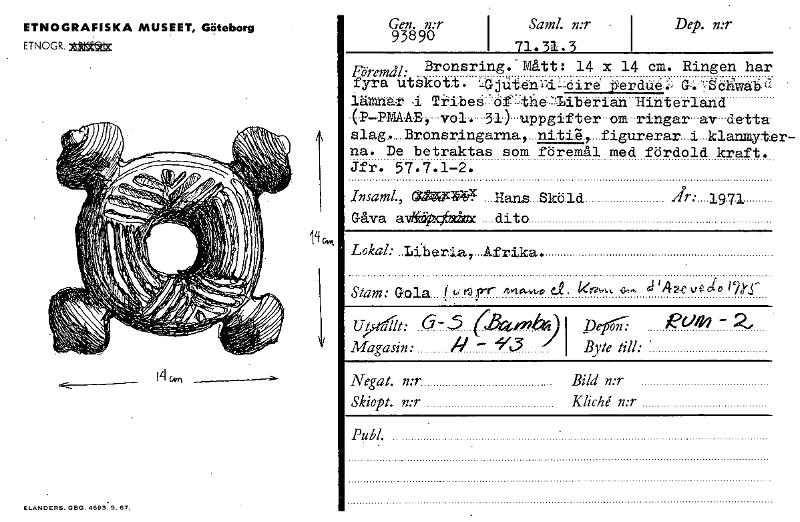 ETNOGRAFISKA MUSEET, Göteborg
ETNOGR.
Gen. n:r
93890
Saml. n:r
71.31.3
Dep. n:r
Föremål: Bronsring. Mått: 14 x 14 cm. Ringen har
fyra utskott. Gjuten i cire perdue. G. Schwab
lämnar i Tribes of the Liberian Hinterland
(P-PMAAE, vol. 31) uppgifter om ringar av detta
slag. Bronsringarna, nitiẽ, figurerar i klanmyter-
na. De betraktas som föremål med fördold kraft.
Jfr. 57.7.1-2.
Insaml., Hans Sköld År: 1971
Gåva av dito
Lokal: Liberia, Afrika.
Stam: Gola (urspr mano el. Kran en d'Azevedo 1985
Utställt: G-S (Bamba)
Depon: RUM-2
Magasin: H-43
Byte till:
Negat. n:r
Bild n:r
Skiopt. n:r
Kliché n:r
Publ.
14 cm
14 cm
ELANDERS, GBG. 4693. 5. 67.